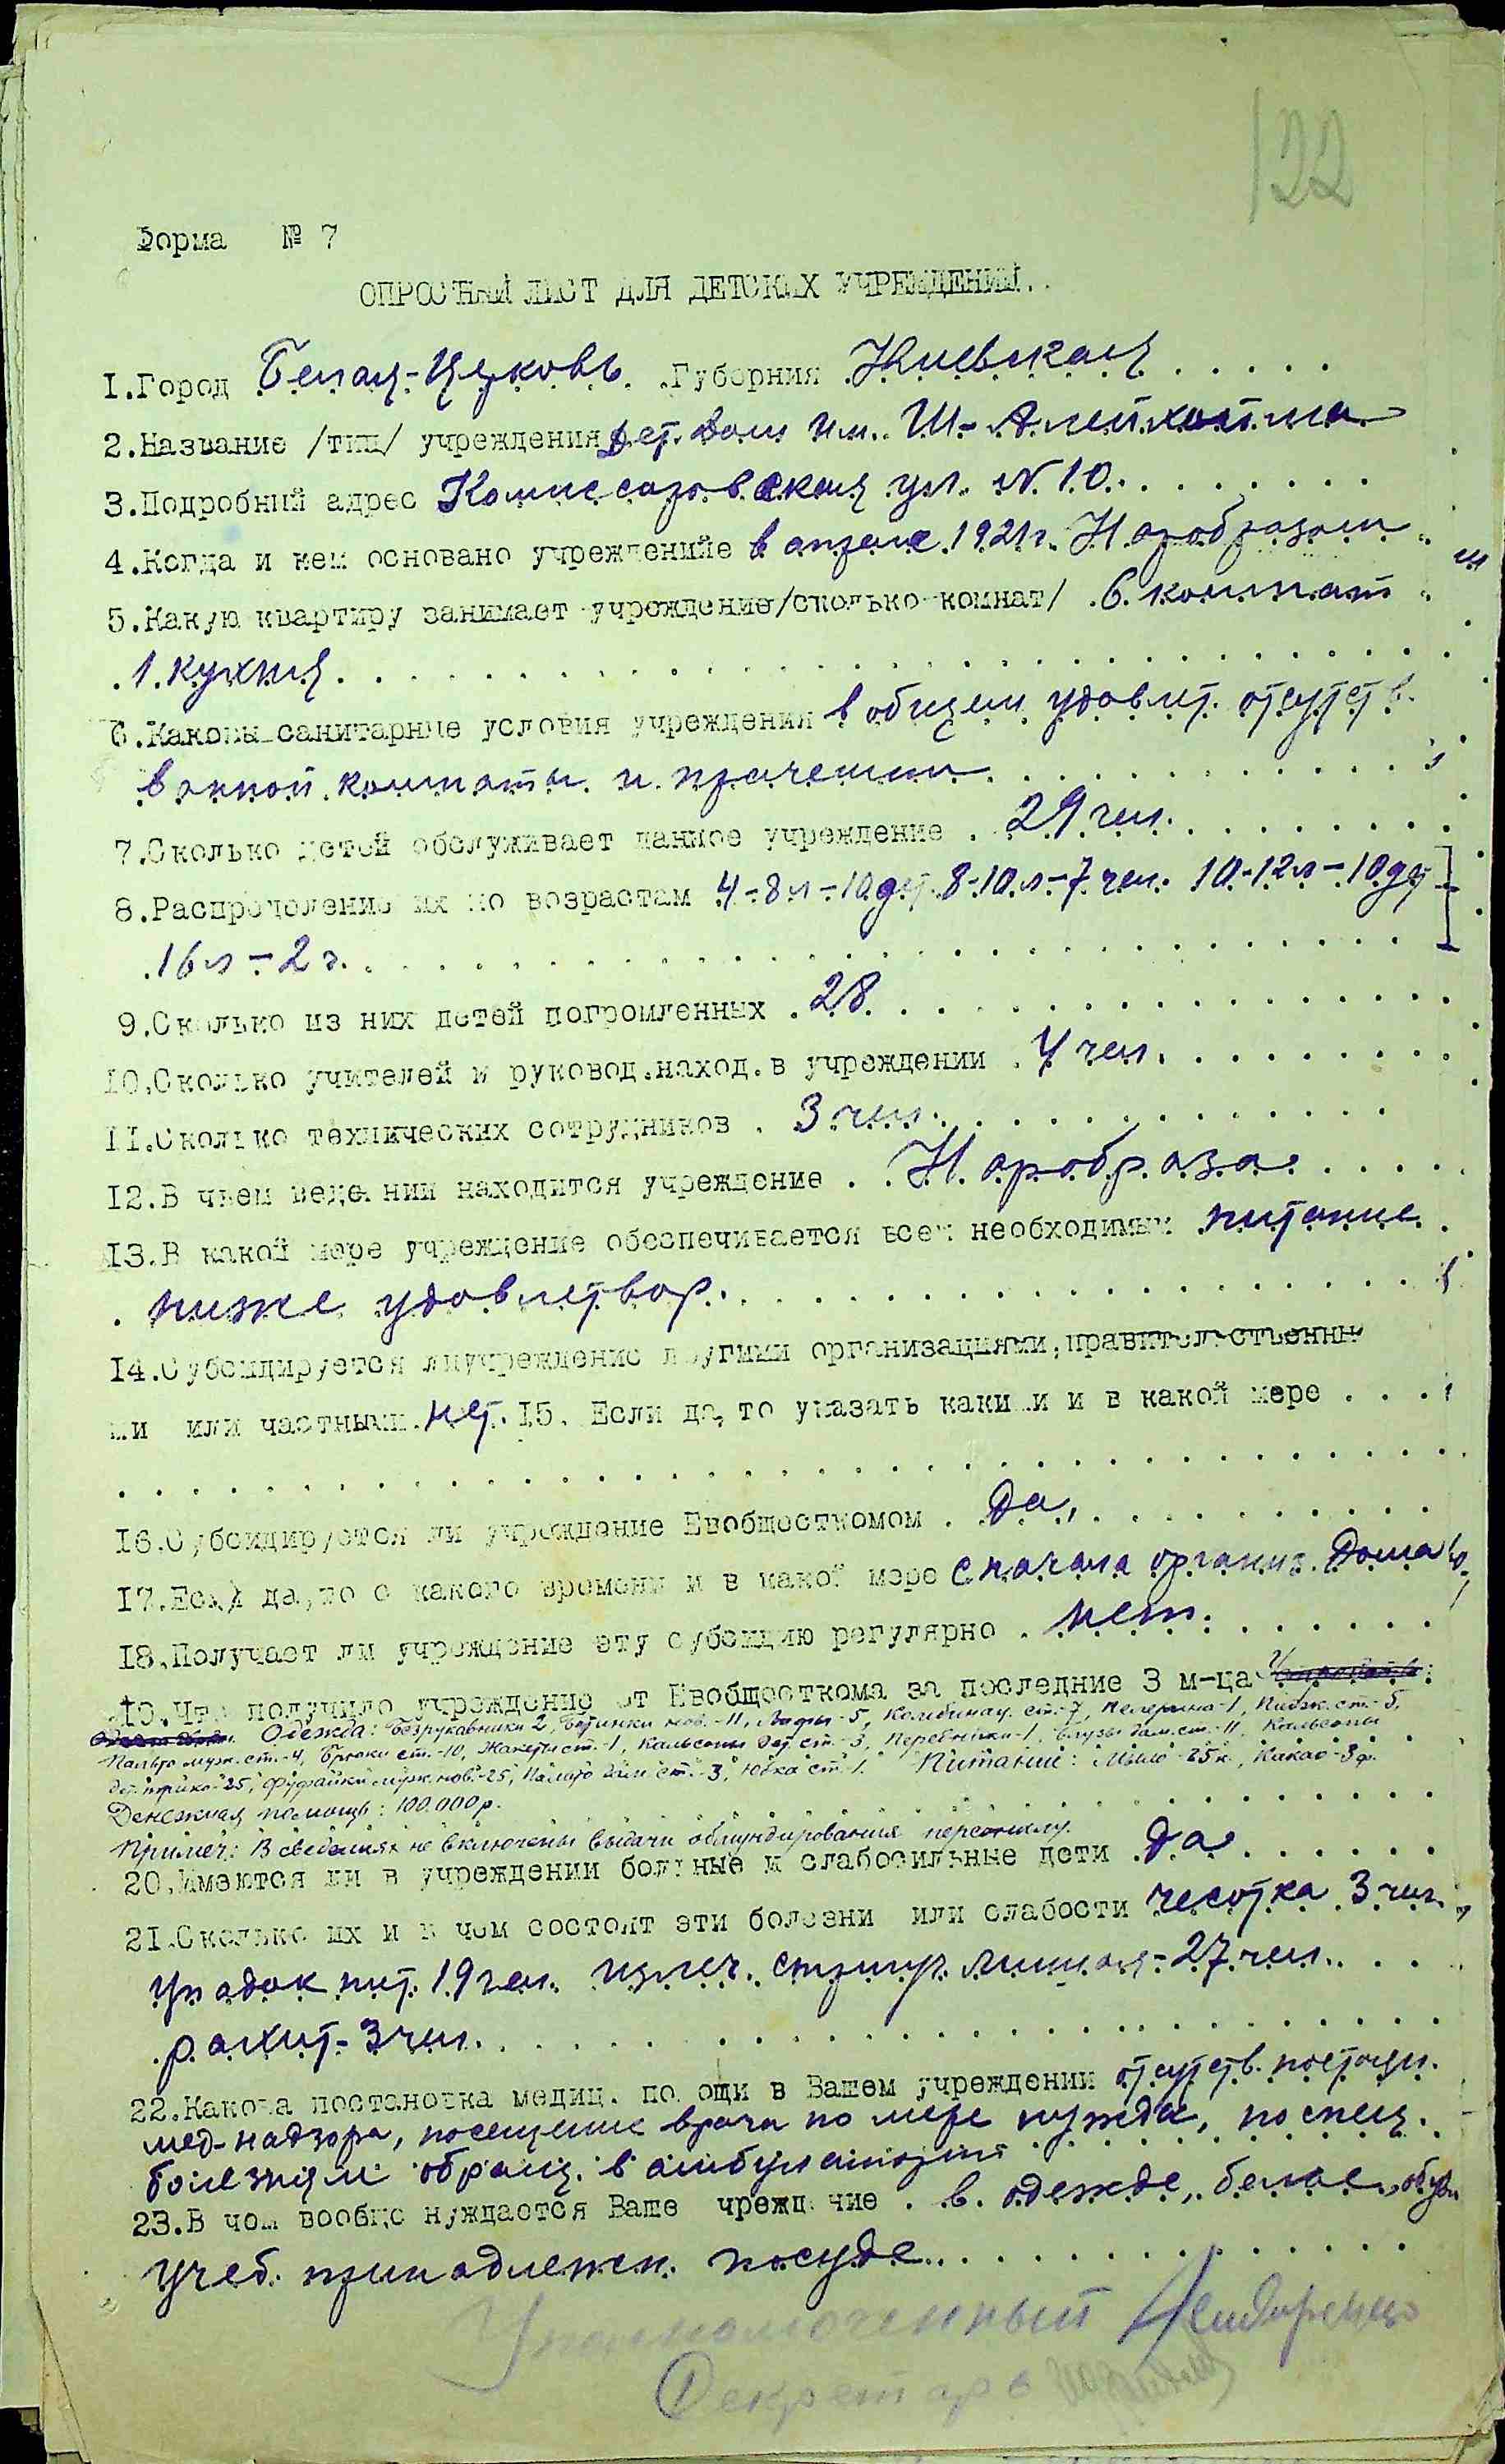 122
Форма № 7
ОПРОСНЫЙ ЛИСТ ДЛЯ ДЕТСКИХ УЧРЕЖДЕНИЙ.
1.Город Белая-Церковь. Губерния Киевская
2.Название /тип/ учреждения Дет. дом им. Ш-Алейхема
3.Подробный адрес Комиссаровская ул. N 10
4.Когда и кем основано учреждениие в апреле 1921 г. Наробразом
5.Какую квартиру занимает учреждение/сколько комнат/ 6 комнат
1 кухня
6.Каковы санитарные условия учреждения в общем удовлет. отсутств.
ванной комнаты и прачешни
7.Сколько детей обслуживает данное учреждение 29 чел.
8.Распределение их по возрастам 4-8 л-10 дет. 8-10 л-7 чел. 10-12 л-10 де
16 л-2
9.Сколько из них детей погромленных 28
10.Сколько учителей и руковод.наход.в учреждении 4 чел.
11.Сколько технических сотрудников 3 чел.
12.В чьем ведении находится учреждение Наробраза
13.В какой мере учреждение обеспечивается всем необходимым питание
ниже удовлетвор.
14.Субсидируется ли учреждение другими организациями, правительственны
ми или частными нет. 15. Если да, то указать какими и в какой мере
16.Субсидируется ли учреждение Евобщесткомом Да,
17.Если да, то с какого времени и в какой мере с начала организ. Дома
18.Получает ли учреждение эту субсидию регулярно нет.
19.Что получило учреждение от Евобщесткома за последние 3 м-ца
Одежда: Безрукавники 2, Ботинки нов.-11, -5, Комбинац. ст.-7, Пелерина-1, Пидж. ст.-5,
Пальто муж. ст.-4, Брюки ст.-10, Жакеты ст.-1, Кальсоны дет. ст.-3, Передники-1, Блузы дам. ст.-11, Кальсоны
дет. трико-25, Фуфайки муж. нов.-25, Пальто дам. ст.-3, Юбка ст.-1. Питание: Мыло-25 к., Какао-3 ф.
Денежная помощь: 100.000 р.
Примеч: В сведениях не включены выдачи обмундирования персоналу.
20.Имеются ли в учреждении больные и слабосильные дети Да
21.Сколько их и в чем состоят эти болезни или слабости чесотка 3 чел.
Упадок пит. 19 чел. излеч. стригу лишая-27 чел.
рахит-3 чел.
22.Какова постановка медиц. помощи в Вашем учреждении отсутств. постоян.
мед-надзора, посещение врача по мере нужды, по спец.
болезням обращ. в амбулаторию
23.В чем вообще нуждается Ваше учреждение в одежде, белье, обуви
Учеб. принадлежн. посуде
Уполномоченный
Секретарь